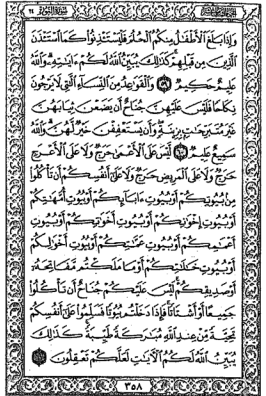 سورة النور ٢٤
وَإِذَا بَلَغَ ٱلْأَطْفَٰلُ مِنكُمُ ٱلْحُلُمَ فَلْيَسْتَـْٔذِنُوا۟ كَمَا ٱسْتَـْٔذَنَ
ٱلَّذِينَ مِن قَبْلِهِمْ كَذَٰلِكَ يُبَيِّنُ ٱللَّهُ لَكُمْ ءَايَٰتِهِۦ وَٱللَّهُ
عَلِيمٌ حَكِيمٌ ٥٩ وَٱلْقَوَٰعِدُ مِنَ ٱلنِّسَآءِ ٱلَّٰتِى لَا يَرْجُونَ
نِكَاحًا فَلَيْسَ عَلَيْهِنَّ جُنَاحٌ أَن يَضَعْنَ ثِيَابَهُنَّ
غَيْرَ مُتَبَرِّجَٰتٍۭ بِزِينَةٍ وَأَن يَسْتَعْفِفْنَ خَيْرٌ لَّهُنَّ وَٱللَّهُ
سَمِيعٌ عَلِيمٌ ٦٠ لَّيْسَ عَلَى ٱلْأَعْمَىٰ حَرَجٌ وَلَا عَلَى ٱلْأَعْرَجِ
حَرَجٌ وَلَا عَلَى ٱلْمَرِيضِ حَرَجٌ وَلَا عَلَىٰٓ أَنفُسِكُمْ أَن تَأْكُلُوا۟
مِنۢ بُيُوتِكُمْ أَوْ بُيُوتِ ءَابَآئِكُمْ أَوْ بُيُوتِ أُمَّهَٰتِكُمْ
أَوْ بُيُوتِ إِخْوَٰنِكُمْ أَوْ بُيُوتِ أَخَوَٰتِكُمْ أَوْ بُيُوتِ
أَعْمَٰمِكُمْ أَوْ بُيُوتِ عَمَّٰتِكُمْ أَوْ بُيُوتِ أَخْوَٰلِكُمْ
أَوْ بُيُوتِ خَٰلَٰتِكُمْ أَوْ مَا مَلَكْتُم مَّفَاتِحَهُۥٓ
أَوْ صَدِيقِكُمْ لَيْسَ عَلَيْكُمْ جُنَاحٌ أَن تَأْكُلُوا۟
جَمِيعًا أَوْ أَشْتَاتًا فَإِذَا دَخَلْتُم بُيُوتًا فَسَلِّمُوا۟ عَلَىٰٓ أَنفُسِكُمْ
تَحِيَّةً مِّنْ عِندِ ٱللَّهِ مُبَٰرَكَةً طَيِّبَةً كَذَٰلِكَ
يُبَيِّنُ ٱللَّهُ لَكُمُ ٱلْءَايَٰتِ لَعَلَّكُمْ تَعْقِلُونَ ٦١
٣٥٨